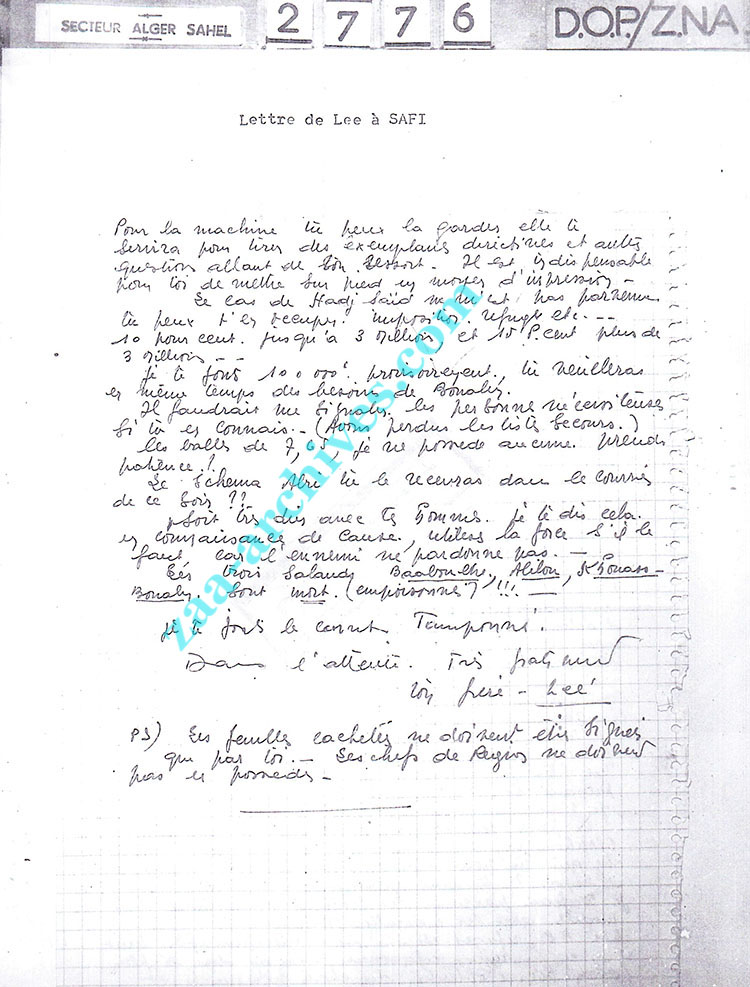 SECTEUR ALGER SAHEL 2 7 7 6 D.O.P./Z.NA
Lettre de Lee à SAFI
Pour la machine tu peux la garder elle te
servira pour tirer des exemplaires directives et autres
question allant de ton ressort. Il est indispensable
pour toi de mettre sur pied un moyen d'impression -
Le cas de Hadj Said ne m'est pas parvenu
tu peux t'en occuper. imposition, refuge etc. ---
10 pour cent. jusqu'à 3 millions, et 15 P. cent plus de
3 millions --
je te joins 100 000 provisoirement, tu veilleras
en même temps des besoins de
Il faudrait me signaler les personne nécessiteuses
si tu en connais. - (Avons perdus les liste secours.)
les balles de 7,65 je ne possède aucune. prends
patience.!
Le Schema Abri tu le recevras dans le courrier
de ce soir ??
Soit très dur avec tes hommes. je te dis cela
en connaissance de cause, utilises la force s'il le
faut car l'ennemi ne pardonne pas. -
Les trois salauds
sont mort. (empoisonné) !!! -
je te joins le carnet Tamponné.
Dans l'attente. Très fraternel
ton frère - Lee
PS) Les feuilles cachetés ne doivent être signés
que par toi. - Les chefs de Region ne doivent
pas en posseder -
zaa-archives.com